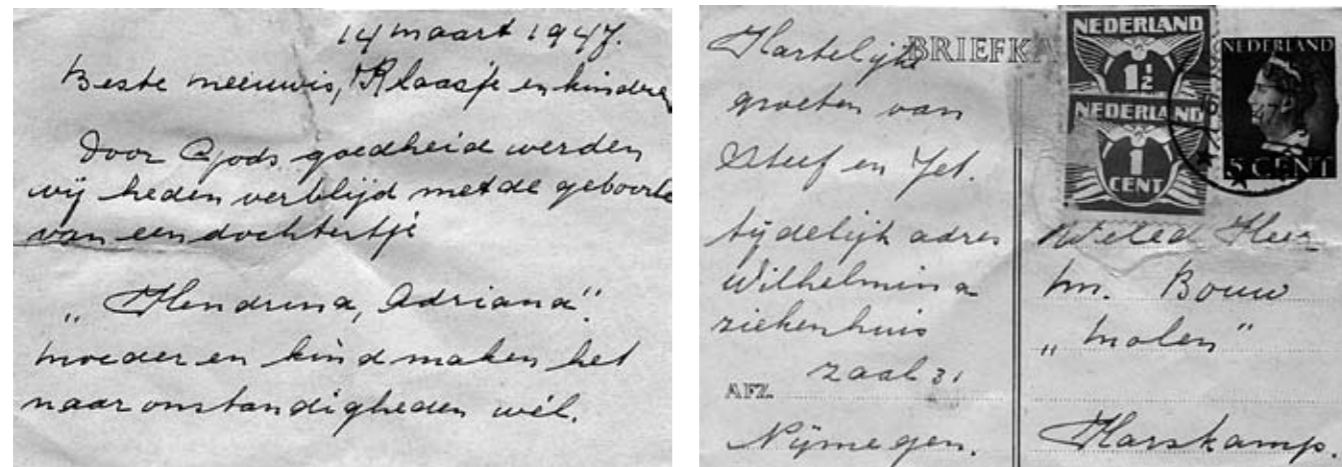 14 maart 1947.
Beste meeuwis, Klaasje en kinderen
Door Gods goedheid werden
wij heden verblijd met de geboorte
van een dochtertje
„Hendrina, Adriana".
moeder en kind maken het
naar omstandigheden wél.
Hartelijke
groeten van
Steef en Jet.
tijdelijk adres
Wilhelmina
ziekenhuis
zaal 31
AFZ.
Nijmegen.
BRIEFKA
NEDERLAND
1½
NEDERLAND
1
CENT
NEDERLAND
5 CENT
Weled Heer
m. Bouw
„molen"
Harskamp.